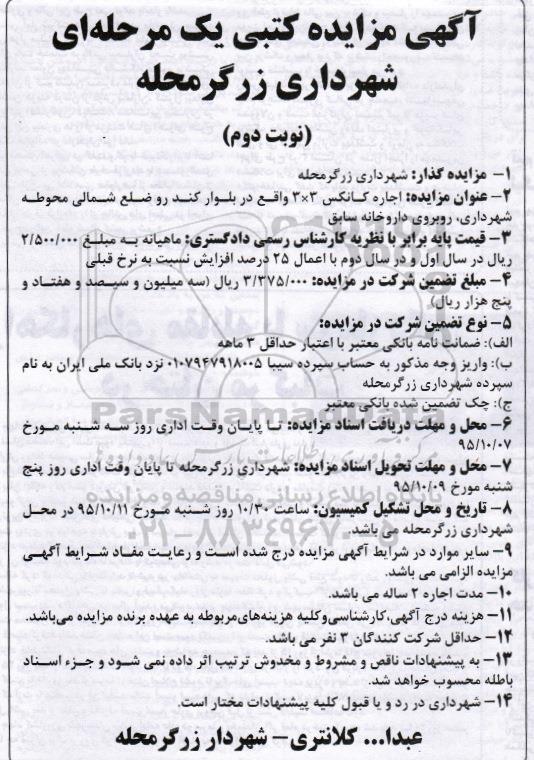 آگهی مزایده کتبی یک مرحله‌ای
شهرداری زرگرمحله
(نوبت دوم)
۱- مزایده گذار: شهرداری زرگرمحله
۲- عنوان مزایده: اجاره کانکس ۳×۳ واقع در بلوار کندرو ضلع شمالی محوطه
شهرداری، روبروی داروخانه سابق
۳- قیمت پایه برابر با نظریه کارشناس رسمی دادگستری: ماهیانه به مبلغ ۲/۵۰۰/۰۰۰
ریال در سال اول و در سال دوم با اعمال ۲۵ درصد افزایش نسبت به نرخ قبلی
۴- مبلغ تضمین شرکت در مزایده: ۳/۳۷۵/۰۰۰ ریال (سه میلیون و سیصد و هفتاد و
پنج هزار ریال)
۵- نوع تضمین شرکت در مزایده:
الف): ضمانت نامه بانکی معتبر با اعتبار حداقل ۳ ماهه
ب): واریز وجه مذکور به حساب سپرده سیبا ۰۱۰۷۹۴۷۹۱۸۰۰۵ نزد بانک ملی ایران به نام
سپرده شهرداری زرگرمحله
ج): چک تضمین شده بانکی معتبر
ParsNamadData
۶- محل و مهلت دریافت اسناد مزایده: تا پایان وقت اداری روز سه شنبه مورخ
۹۵/۱۰/۰۷
۷- محل و مهلت تحویل اسناد مزایده: شهرداری زرگرمحله تا پایان وقت اداری روز پنج
شنبه مورخ ۹۵/۱۰/۰۹
پایگاه اطلاع رسانی مناقصه و مزایده
۸- تاریخ و محل تشکیل کمیسیون: ساعت ۱۰/۳۰ روز شنبه مورخ ۹۵/۱۰/۱۱ در محل
شهرداری زرگرمحله می باشد.
۰۲۱-۸۸۳۴۹۶۷۰-۵
۹- سایر موارد در شرایط آگهی مزایده درج شده است و رعایت مفاد شرایط آگهی
مزایده الزامی می باشد.
۱۰- مدت اجاره ۲ ساله می باشد.
۱۱- هزینه درج آگهی،کارشناسی‌وکلیه هزینه‌های‌مربوطه به عهده برنده مزایده می‌باشد.
۱۲- حداقل شرکت کنندگان ۳ نفر می باشد.
۱۳- به پیشنهادات ناقص و مشروط و مخدوش ترتیب اثر داده نمی شود و جزء اسناد
باطله محسوب خواهد شد.
۱۴- شهرداری در رد و یا قبول کلیه پیشنهادات مختار است.
عبدا... کلانتری- شهردار زرگرمحله